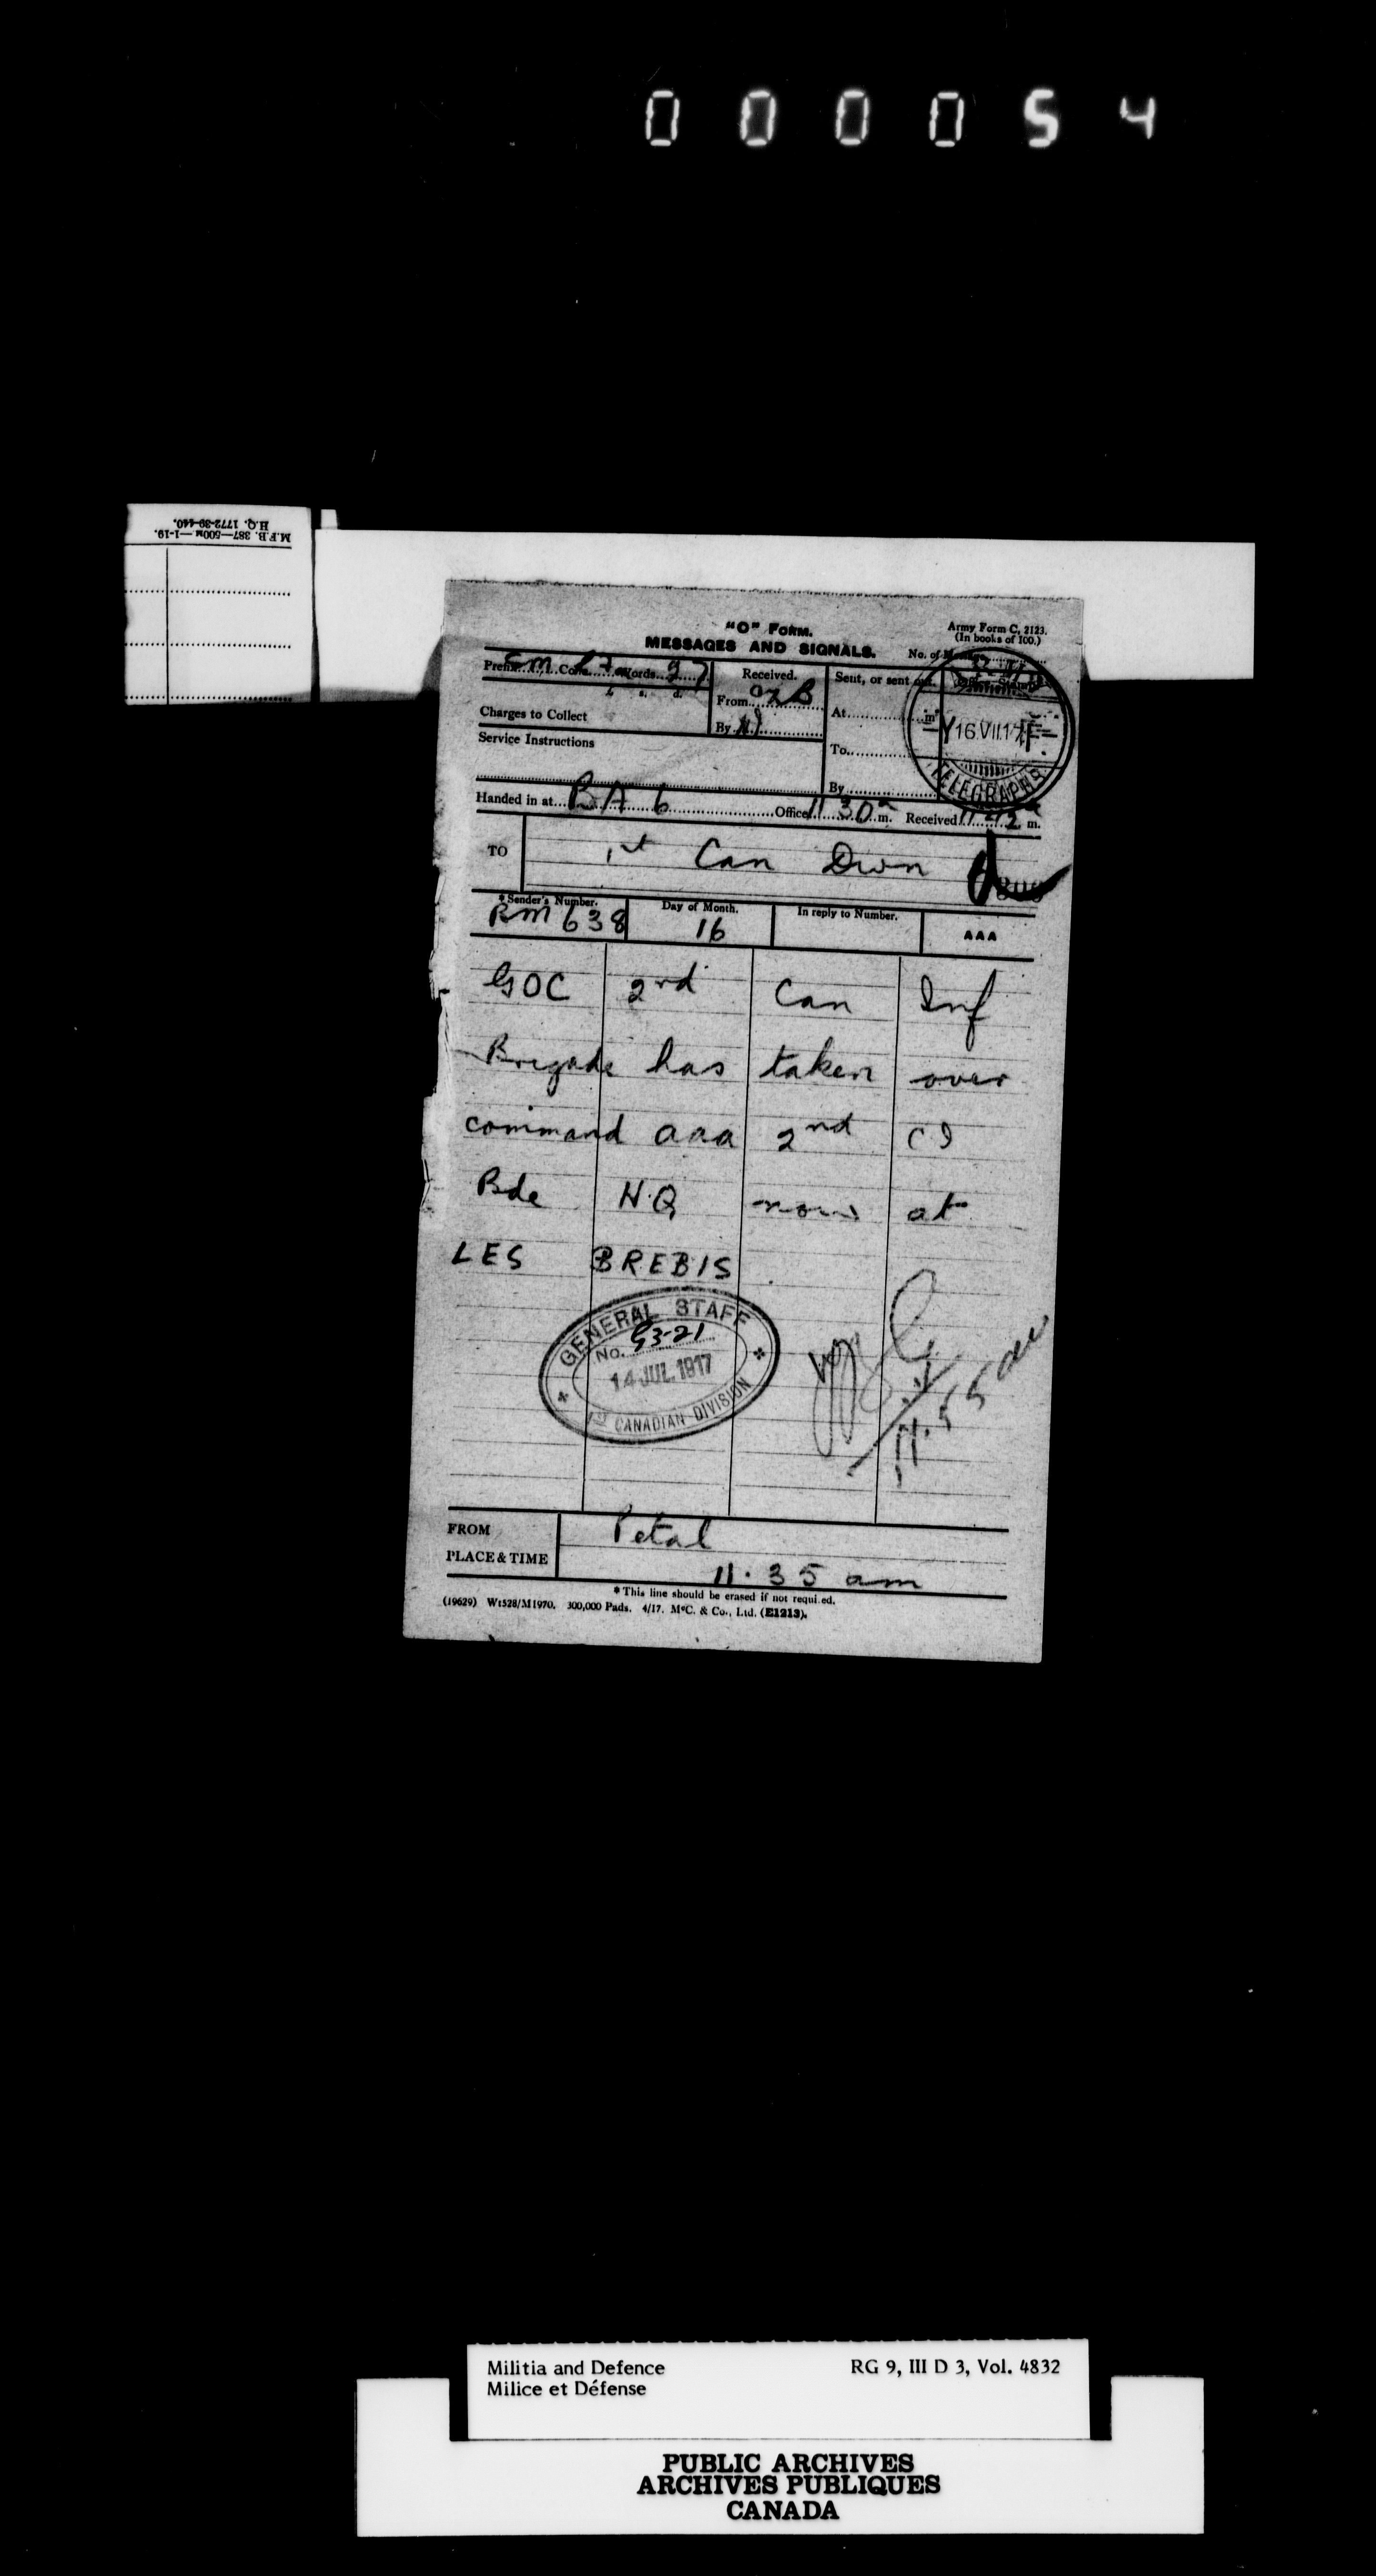 000054
H.Q. 1772-39-440.
M.F.B. 387—500M.—1-19.
"C" FORM.
MESSAGES AND SIGNALS.
Army Form C. 2123.
(In books of 100.)
No. of
Prefix Code Words
Received.
From
By
Sent, or sent out.
At m.
To
By
£ s. d.
Charges to Collect
Service Instructions
16.VII.17
TELEGRAPHS
Handed in at BA 6 Office 11 30 a m. Received 11.42 a m.
TO 1st Can Divn
*Sender's Number. Day of Month. In reply to Number. AAA
BM 638 16
GOC 2nd Can Inf
Brigade has taken over
command aaa 2nd CI
Bde H.Q now at
LES BREBIS
GENERAL STAFF
No. G3-21
14 JUL. 1917
1ST CANADIAN DIVISION
11.55 am
FROM Petal
PLACE & TIME 11.35 am
*This line should be erased if not required.
(19629) Wt528/M1970. 300,000 Pads. 4/17. McC. & Co., Ltd. (E1213).
Militia and Defence RG 9, III D 3, Vol. 4832
Milice et Défense
PUBLIC ARCHIVES
ARCHIVES PUBLIQUES
CANADA